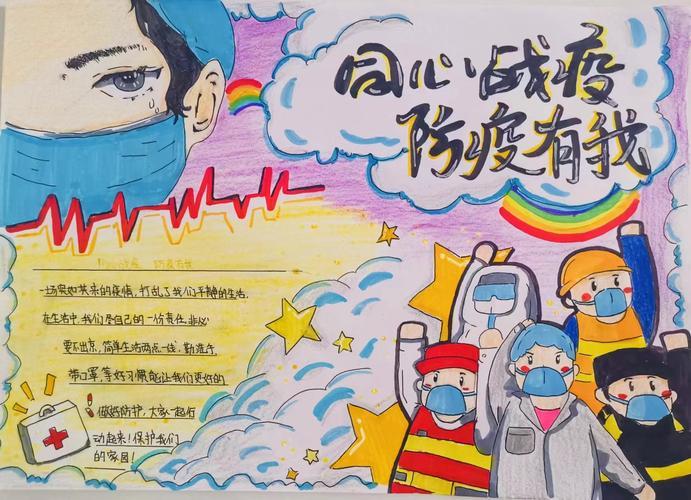 同心战疫
防疫有我
防疫有我
一场突如其来的疫情,打乱了我们平静的生活.
在生活中,我们尽自己的一份责任.非必
要不出京,简单生活两点一线,勤洗手,
带口罩,等好习惯能让我们更好的
做好防护,大家一起行
动起来!保护我们
的家园!